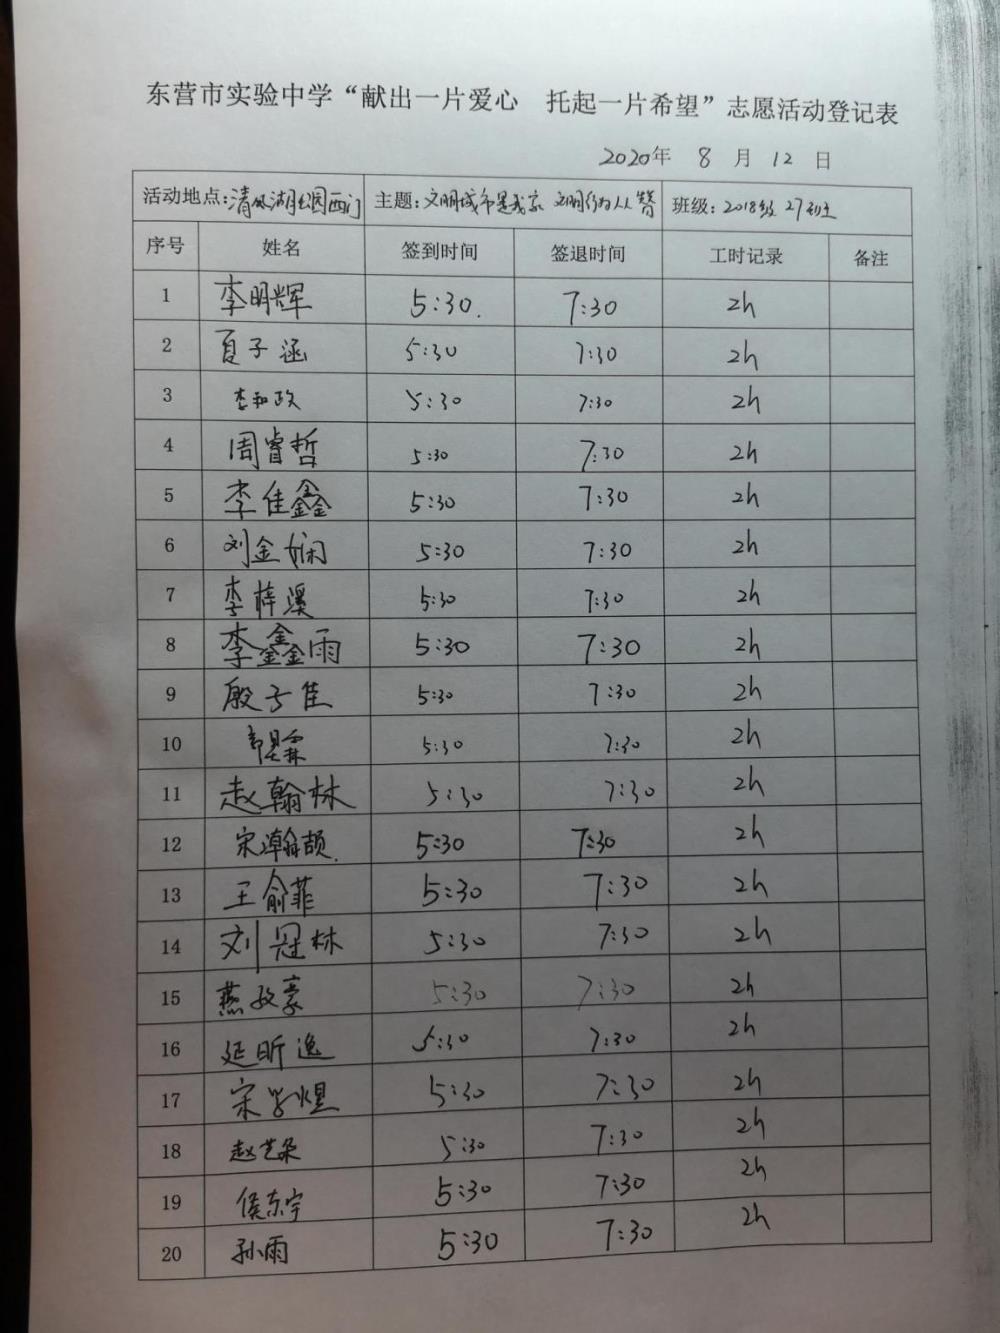 东营市实验中学“献出一片爱心 托起一片希望”志愿活动登记表
2020年 8 月 12 日
活动地点:清风湖公园西门 主题:文明城市是我家 文明行为人人赞 班级:2018级27班
序号 姓名 签到时间 签退时间 工时记录 备注
1 李明辉 5:30. 7:30 2h
2 夏子涵 5:30 7:30 2h
3 李和政 5:30 7:30 2h
4 周睿哲 5:30 7:30 2h
5 李佳鑫 5:30 7:30 2h
6 刘金娴 5:30 7:30 2h
7 李梓溪 5:30 7:30 2h
8 李鑫雨 5:30 7:30 2h
9 殷子佳 5:30 7:30 2h
10 5:30 7:30 2h
11 赵翰林 5:30 7:30 2h
12 宋瀚颉. 5:30 7:30 2h
13 王俞菲 5:30 7:30 2h
14 刘冠林 5:30 7:30 2h
15 燕政豪 5:30 7:30 2h
16 延昕逸 5:30 7:30 2h
17 宋学煜 5:30 7:30 2h
18 赵艺朵 5:30 7:30 2h
19 侯东宇 5:30 7:30 2h
20 孙雨 5:30 7:30 2h